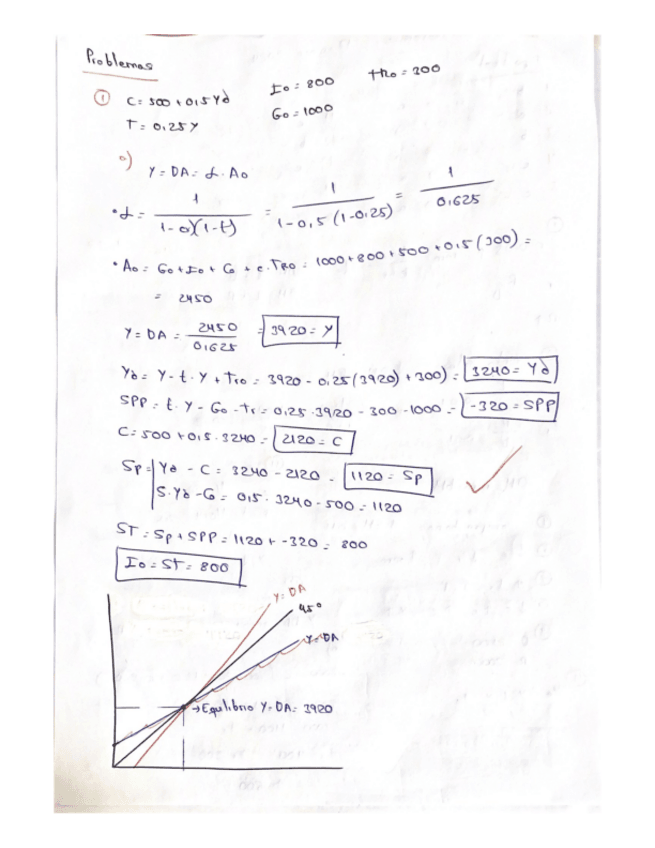 Problemas
① C = 500 + 0,5 Yd   I₀ = 800   TR₀ = 300
T = 0,25 Y   G₀ = 1000
a)
Y = DA = α · A₀
• α = 1 / (1 - c)(1 - t) = 1 / 1 - 0,5 (1 - 0,25) = 1 / 0,625
• A₀ = G₀ + I₀ + C₀ + c · TR₀ = 1000 + 800 + 500 + 0,5 (300) =
= 2450
Y = DA = 2450 / 0,625 = 3920 = Y
Yd = Y - t · Y + Tr₀ = 3920 - 0,25 (3920) + 300) = 3240 = Yd
SPP = t · Y - G₀ - Tr = 0,25 · 3920 - 300 - 1000 = -320 = SPP
C = 500 + 0,5 · 3240 = 2120 = C
Sp = Yd - C = 3240 - 2120 = 1120 = Sp
S · Yd - C₀ = 0,5 · 3240 - 500 = 1120
ST = Sp + SPP = 1120 + -320 = 800
I₀ = ST = 800
Y = DA
45°
Y = DA
→ Equilibrio Y = DA = 3920